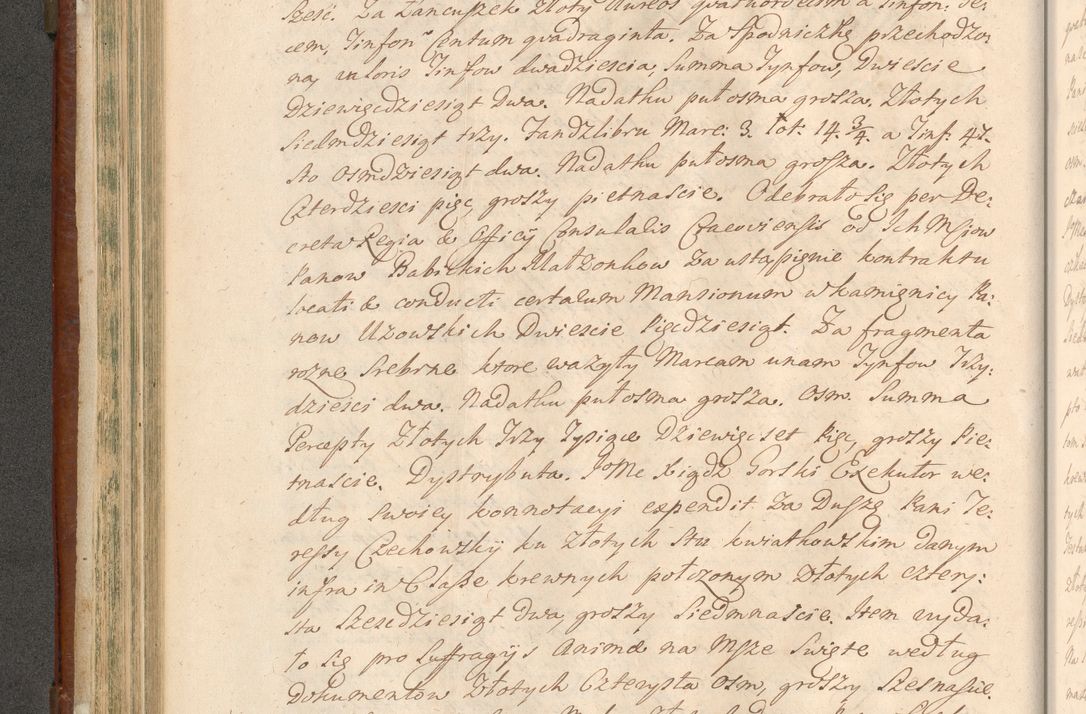 Sześć. Za Łancuszek Złoty Aureos quatuordecim a Tinfon: de:
cem, Tinfon Centum quadraginta. Za Spodniczkę przechodzo
ną, in loris Tinfow dwadziescia, Summa Tynfow, Dwieście
Dziewięcdziesiąt Dwa. Nadatku puł osma grosza. Złotych
Siedmdziesiąt trzy. Fandzlibru Marc: 3. Łot: 14. 3/4. a Tinf: 47.
Sto osmdziesiąt dwa. Nadatku puł osma grosza. Złotych
Czterdziesci pięc, groszy pietnascie. Odebrało się per De:
creta Regia & Officij Consulalis Cracoviensis od Ich Msciow
Panow Babickich Małżonkow za ustąpienie kontraktu
locati & conducti certarum Mansionum w kamienicy Pa:
now Uzowskich Dwiescie Pięcdziesiąt. Za fragmenta
rozne Srebrne ktore ważyły Marcam unam Tynfow Trzy:
dziesci dwa. Nadatku puł osma grosza. osm. Summa
Percepty Złotych Trzy Tysiące Dziewięcset Pięc, groszy Pie:
tnascie. Dystrybuta. JoMc Xiądz Gorski Exekutor we:
dług swoiey konnotacyi expendit Za Duszę Pani Te:
ressy Czechowskij ku Złotych Stu kwiatkowskim danym
infra in Classe krewnych połczonym Złotych cztery:
sta Szescdziesiąt Dwa, groszy Siedmnascie. Item wyda:
ło się pro Suffragijs Animæ na Msze Swięte według
Dokumentow Złotych Czterysta osm, groszy Szesnascie.